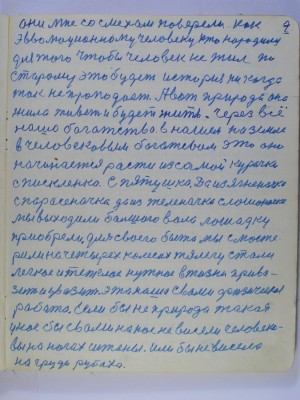 9
они мне со смехам поверели. как
Эвволюционному человеку, кто народили
для того чтобы человек не жил по
старому, это будет история ни когда
так не проподает. А вот природа она
жила живет и будет жить. Через всё
наше богатство. в нашем на земле
в человековым богатвом это оно
начинается расти из самой курочки
с писклёнка. С петушка. Да из ягненочка
с поросеночка да из теленачка
мы выходили большого вола лошадку
приобрели, для своего быта мы смосте
рели на четырех колесах тялегу стали
легкое и тяжолое нужное в жизни приво
зить и увозить. Эта наша с вами физическая
работа. Если бы не природа такая
у нас бы с вами на нос не висели человек
вы на ногах штаны. или бы не висела
на груде рубаха.